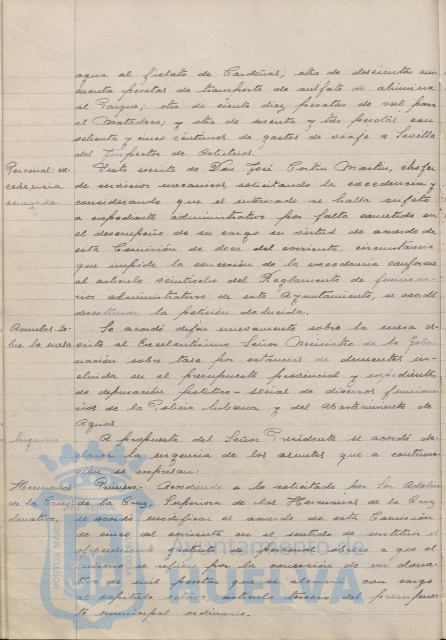 agua al fielato de Cardeñas; otra de doscientas cin-
cuenta pesetas de transporte de sulfato de alúmina
al Parque; otra de ciento diez pesetas de sal para
el Matadero; y otra de sesenta y tres pesetas con
setenta y cinco céntimos de gastos de viaje a Sevilla
del Inspector de Arbitrios.
Personal: ex-
cedencia
denegada
Visto escrito de Don José Cortés Martín, chófer
de servicios mecánicos, solicitando la excedencia y
considerando que el interesado se halla sujeto
a expediente administrativo por falta cometida en
el desempeño de su cargo en virtud de acuerdo de
esta Comisión de doce del corriente, circunstancia
que impide la concesión de la excedencia conforme
al artículo veintiocho del Reglamento de funciona-
rios administrativos de este Ayuntamiento, se acordó
desestimar la petición deducida.
Asuntos so-
bre la mesa
Se acordó dejar nuevamente sobre la mesa es-
crito al Excelentísimo Señor Ministro de la Gober-
nación sobre tasa por estancias de dementes in-
cluida en el presupuesto provincial y expediente
de depuración político-social de diversos funciona-
rios de la Policía Urbana y del Abastecimiento de
Aguas.
Urgencia
A propuesta del Señor Presidente se acordó de-
clarar la urgencia de los asuntos que a continua-
ción se expresan:
Hermanas
de la Cruz:
donativo
Primero. Accediendo a lo solicitado por Sor
de la Cruz, Superiora de las Hermanas de la Cruz,
se acordó modificar el acuerdo de esta Comisión
de cinco del corriente en el sentido de sustituir el
ofrecimiento gratuito de personal obrero a que el
mismo se refiere por la concesión de un dona-
tivo de mil pesetas que se abonará con cargo
al capítulo artículo tercero del presupues-
to municipal ordinario.
Ayuntamiento de
HUELVA
PORTUS MARIS